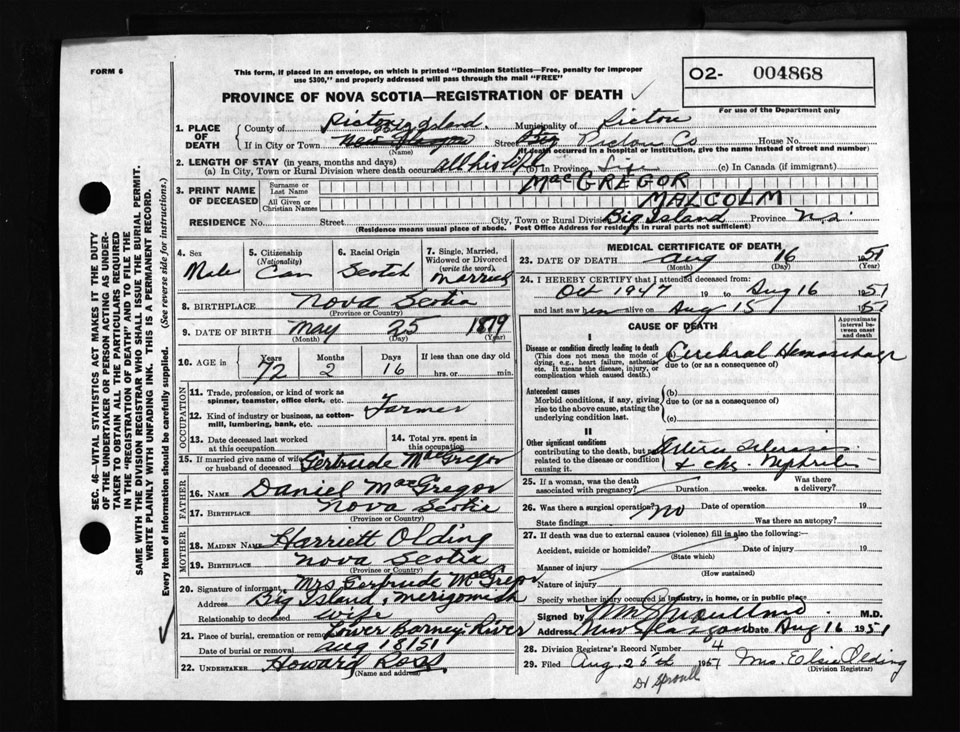 FORM 6
This form, if placed in an envelope, on which is printed "Dominion Statistics—Free, penalty for improper
use $300," and properly addressed will pass through the mail "FREE"
O2- 004868
For use of the Department only
PROVINCE OF NOVA SCOTIA—REGISTRATION OF DEATH
1. PLACE OF DEATH
County of Pictou Municipality of Pictou
Big Island.
If in City or Town New Glasgow Street Pictou Co House No.
(Name) (If death occurred in a hospital or institution, give the name instead of street and number)
2. LENGTH OF STAY (in years, months and days)
(a) In City, Town or Rural Division where death occurred all his life (b) In Province Life (c) In Canada (if immigrant)
3. PRINT NAME OF DECEASED
Surname or Last Name MacGREGOR
All Given or Christian Names MALCOLM
RESIDENCE No. Street City, Town or Rural Division Big Island Province N.S.
(Residence means usual place of abode. Post Office Address for residents in rural parts not sufficient)
4. Sex Male
5. Citizenship (Nationality) Can
6. Racial Origin Scotch
7. Single, Married, Widowed or Divorced (write the word) Married
8. BIRTHPLACE Nova Scotia
(Province or Country)
9. DATE OF BIRTH May 25 1879
(Month) (Day) (Year)
10. AGE in Years 72 Months 2 Days 16 If less than one day old hrs. or min.
OCCUPATION
11. Trade, profession, or kind of work as spinner, teamster, office clerk, etc.
Farmer
12. Kind of industry or business, as cotton-mill, lumbering, bank, etc.
13. Date deceased last worked at this occupation
14. Total yrs. spent in this occupation
15. If married give name of wife or husband of deceased Gertrude MacGregor
FATHER
16. NAME Daniel MacGregor
17. BIRTHPLACE Nova Scotia
(Province or Country)
MOTHER
18. MAIDEN NAME Harriett Olding
19. BIRTHPLACE Nova Scotia
(Province or Country)
20. Signature of informant Mrs Gertrude MacGregor
Address Big Island, Merigomish
Relationship to deceased wife
21. Place of burial, cremation or removal Lower Barney River
Date of burial or removal Aug 18/51
22. UNDERTAKER Howard Ross
(Name and address)
MEDICAL CERTIFICATE OF DEATH
23. DATE OF DEATH Aug 16 1951
(Month) (Day) (Year)
24. I HEREBY CERTIFY that I attended deceased from:
Oct 1947 19 to Aug 16 1951
and last saw him alive on Aug 15 1951
CAUSE OF DEATH
Approximate interval between onset and death
I
Disease or condition directly leading to death
(This does not mean the mode of dying, e.g., heart failure, asthenia, etc. It means the disease, injury, or complication which caused death.)
(a) Cerebral Hemorrhage
due to (or as a consequence of)
Antecedent causes
Morbid conditions, if any, giving rise to the above cause, stating the underlying condition last.
(b)
due to (or as a consequence of)
(c)
II
Other significant conditions
contributing to the death, but not related to the disease or condition causing it.
Arterio Sclerosis
& chr. Nephritis
25. If a woman, was the death associated with pregnancy? Duration weeks. Was there a delivery?
26. Was there a surgical operation? No Date of operation 19
State findings Was there an autopsy?
27. If death was due to external causes (violence) fill in also the following:—
Accident, suicide or homicide? Date of injury 19
(State which)
Manner of injury
(How sustained)
Nature of injury
Specify whether injury occurred in industry, in home, or in public place
Signed by M.D.
Address New Glasgow Date Aug 16 1951
28. Division Registrar's Record Number 4
29. Filed Aug. 25th 1951 Mrs. Elsie Olding
(Division Registrar)
Dr Sproull
SEC. 46—VITAL STATISTICS ACT MAKES IT THE DUTY
OF THE UNDERTAKER OR PERSON ACTING AS UNDER-
TAKER TO OBTAIN ALL THE PARTICULARS REQUIRED
IN THE "REGISTRATION OF DEATH" AND TO FILE THE
SAME WITH THE DIVISION REGISTRAR WHO SHALL ISSUE THE BURIAL PERMIT.
WRITE PLAINLY WITH UNFADING INK. THIS IS A PERMANENT RECORD.
Every item of information should be carefully supplied. (See reverse side for instructions.)